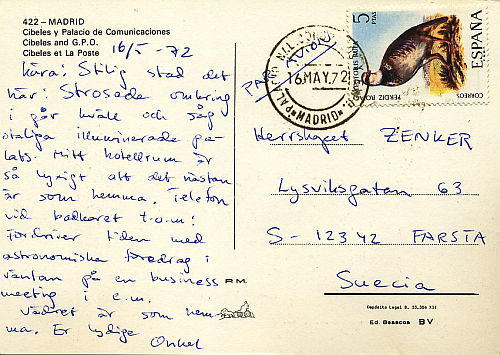 422 – MADRID
Cibeles y Palacio de Comunicaciones
Cibeles and G.P.O.
Cibeles et La Poste
16/5 -72
Kära! Stilig stad det
här! Strosade omkring
i går kväll och såg
otaliga illuminerade pa-
lats. Mitt hotellrum är
så lyxigt att det nästan
är som hemma. Telefon
vid badkaret t.o.m!
Fördriver tiden med
astronomiska föredrag i
väntan på en business
meeting i e.m.
Vädret är som hem-
ma. Er lydige Onkel
R.M.
PAR AVION
16.MAY.72
MADRID
5
PTAS
PERDIZ ROJA
CORREOS
ESPAÑA
Herrskapet ZENKER
Lysviksgatan 63
S-12342 FARSTA
Suecia
Depósito Legal B. 33.306 XII
Ed. Beascoa BV